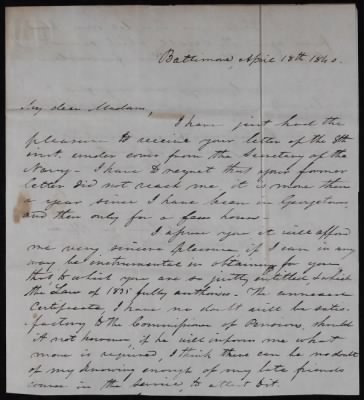 Baltimore, April 18th 1840.
My dear Madam,
I have just had the
pleasure to receive your letter of the 8th
inst. under cover from the Secretary of the
Navy. I have to regret that your former
letter did not reach me, it is more than
a year since I have been in Georgetown,
and then only for a few hours.
I assure you it will afford
me very sincere pleasure if I can in any
way be instrumental in obtaining for you
that to which you are so justly entitled & which
the Law of 1835 fully authorise. The annexed
Certificate, I have no doubt will be satis-
factory to the Commissioner of Pensions, should
it not however, if he will inform me what
more is required, I think there can be no doubt
of my knowing enough of my late friends
course in the service, to attest it.